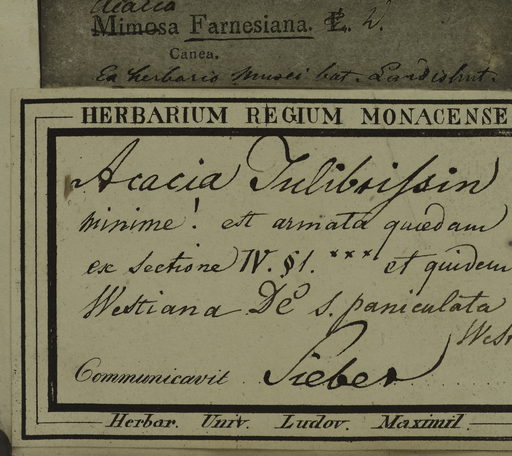 Acacia
Mimosa Farnesiana. L. W.
Canea.
Ex herbario musei bat. Landishut.
HERBARIUM REGIUM MONACENSE
Acacia Julibrissin
minime! est armata quædam
ex sectione IV. § 1. *** et quidem
Westiana DC s. paniculata
West
Communicavit Sieber
Herbar. Univ. Ludov. Maximil.